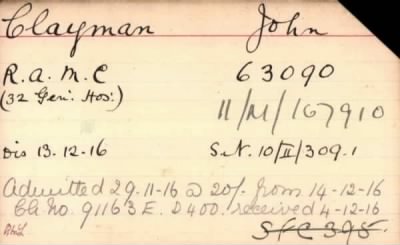 Clayman John
R.A.M.C 63090
(32 Gen. Hos.) 11/M/167910
Dis 13-12-16 S.N. 10/II/309.1
Admitted 29-11-16 @ 20/- from 14-12-16
Ch No. 91163 E. D 400. received 4-12-16
SFC 395